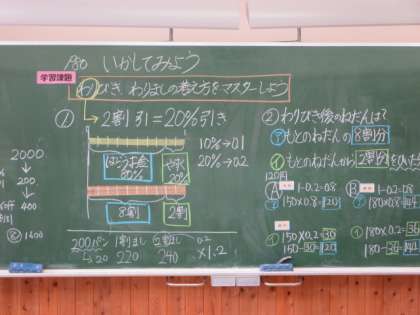 P80 いかしてみよう
学習課題
わりびき、わりましの考え方をマスターしよう
① → 2割引=20%引き
10%→0.1
20%→0.2
はらうお金
80%
20%
8割 2割
2000
↓
200
↓
400
1600
200 1割まし 2割まし 0.2
220 240 ×1.2
② わりびき後のねだんは?
㋐ もとのねだんの8割分
㋑ もとのねだんから2割分を
120円
Ⓐ 1-0.2=0.8
㋐ 150×0.8=120
㋑ 150×0.2=30
150-30=120
Ⓑ 1-0.2=0.8
㋐ 180×0.8=144
㋑ 180×0.2=36
180-36=144